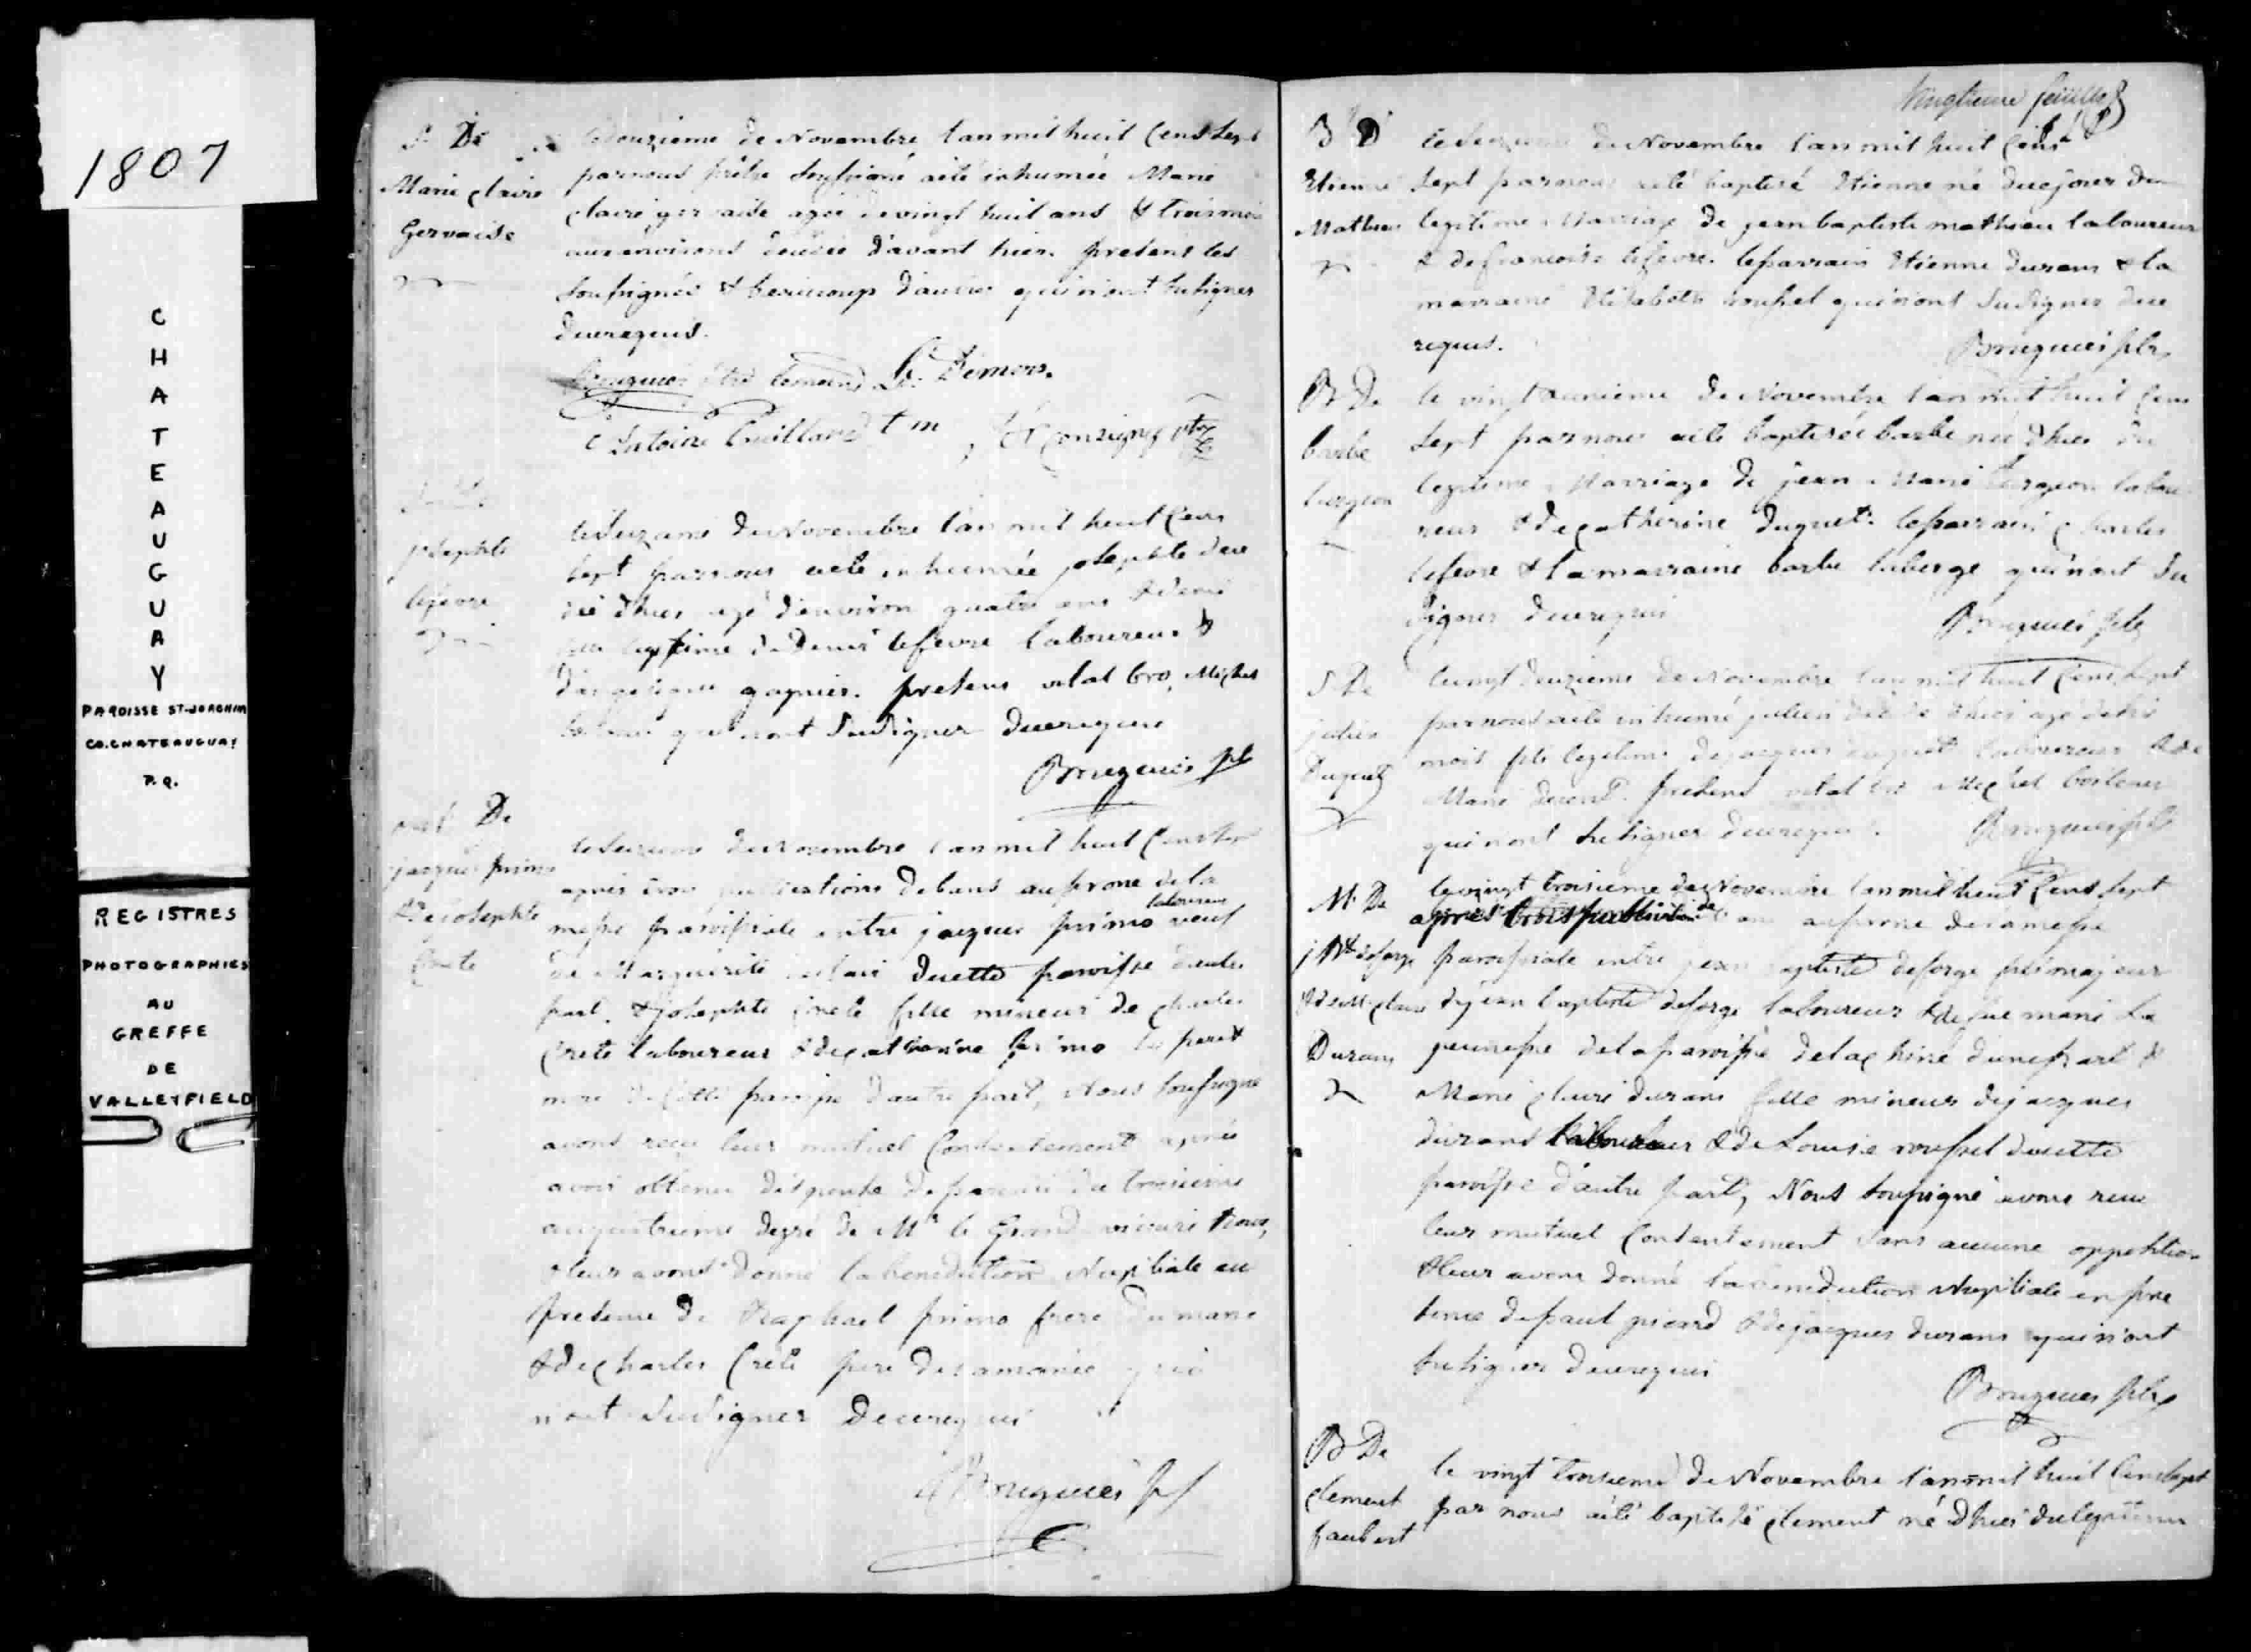 1807
CHATEAUGUAY
PAROISSE ST-JOACHIM
CO. CHATEAUGUAY
P.Q.
REGISTRES
PHOTOGRAPHIES
AU
GREFFE
DE
VALLEYFIELD
S. De
Marie claire
Gervaise
le douzieme de Novembre l'an mil huit Cens Sept
par nous prêtre Soussigné a été inhumée Marie
claire gervaise agée de vingt huit ans & trois mois
aux environs décédée d'avant hier. présens les
Soussignés & beaucoup d'autres qui n'ont Su signer
de ce requis.
Bruguier ptre
Antoine Couillard t m
josephte
lefevre
le Seizieme de Novembre l'an mil huit Cens
Sept par nous a été inhumée josephte dece
dée d'hier agé d'environ quatre ans & demi
legitime de Denis lefevre laboureur &
d'angelique gagnier. présens vital Cros, Michel
qui n'ont Su Signer de ce requis
Bruguier ptr
mar De
jacques primo
& de josephte
Crete
le Seizieme de Novembre l'an mil huit Cens Sept
après trois publications de bans au prone de la
laboureur
messe paroissiale entre jacques primo veuf
de Marguerite de cette paroisse d'une
part. & josephte Crete fille mineur de charles
Crete laboureur & de catherine primo Ses pere &
mere de Cette paroisse d'autre part, Nous Soussigné
avons reçu leur mutuel Consentement après
avoir obtenu dispense de parenté du troisieme
au quatrieme degré de Mr le Grand vicaire Roux,
& leur avons donné la benediction Nuptiale en
présence de Raphael primo frere du marié
& de charles Crete pere de la mariée qui
n'ont Su Signer de ce requis
Bruguier ptr
Vingtieme feuillet
B D
Etienne
Mathieu
le Seizieme de Novembre l'an mil huit Cens
Sept par nous a été baptisé Etienne né de ce jour du
legitime Marriage de jean baptiste mathieu laboureur
& de francoise lefevre. le parrain Etienne durans & la
marraine Elizabeth roussel qui n'ont Su Signer de ce
requis.
Bruguier ptr
B De
barbe
turgeon
le vingt unieme de Novembre l'an mil huit Cens
Sept par nous a été baptisée barbe née d'hier du
legitime Marriage de jean Marie turgeon labou
reur & de catherine duquet. le parrain charles
lefevre & la marraine barbe laberge qui n'ont Su
Signer de ce requis
Bruguier ptr
S De
julien
Duquet
le vingt deuzieme de Novembre l'an mil huit Cens Sept
par nous a été inhumé julien décédé d'hier agé de
mois fils legitime de jacques duquet laboureur & de
Marie présens vital Cros Michel
qui n'ont Su Signer de ce requis.
Bruguier ptr
M. De
j Bte deforge
& de M. claire
Durans
le vingt troisieme de Novembre l'an mil huit Cens Sept
après trois publications de bans au prone de la messe
paroissiale entre jean baptiste deforge fils majeur
de jean baptiste deforge laboureur & de feue marie La
jeunesse de la paroisse de la chine d'une part &
Marie claire durans fille mineur de jacques
durans laboureur & de Louise roussel de cette
paroisse d'autre part, Nous Soussigné avons reçu
leur mutuel Consentement Sans aucune opposition
& leur avons donné la benediction Nuptiale en pre
sence de paul picard & de jacques durans qui n'ont
Su Signer de ce requis
Bruguier ptr
B De
clement
faubert
le vingt troisieme de Novembre l'an mil huit Cens Sept
par nous a été baptisé clement né d'hier du legitime